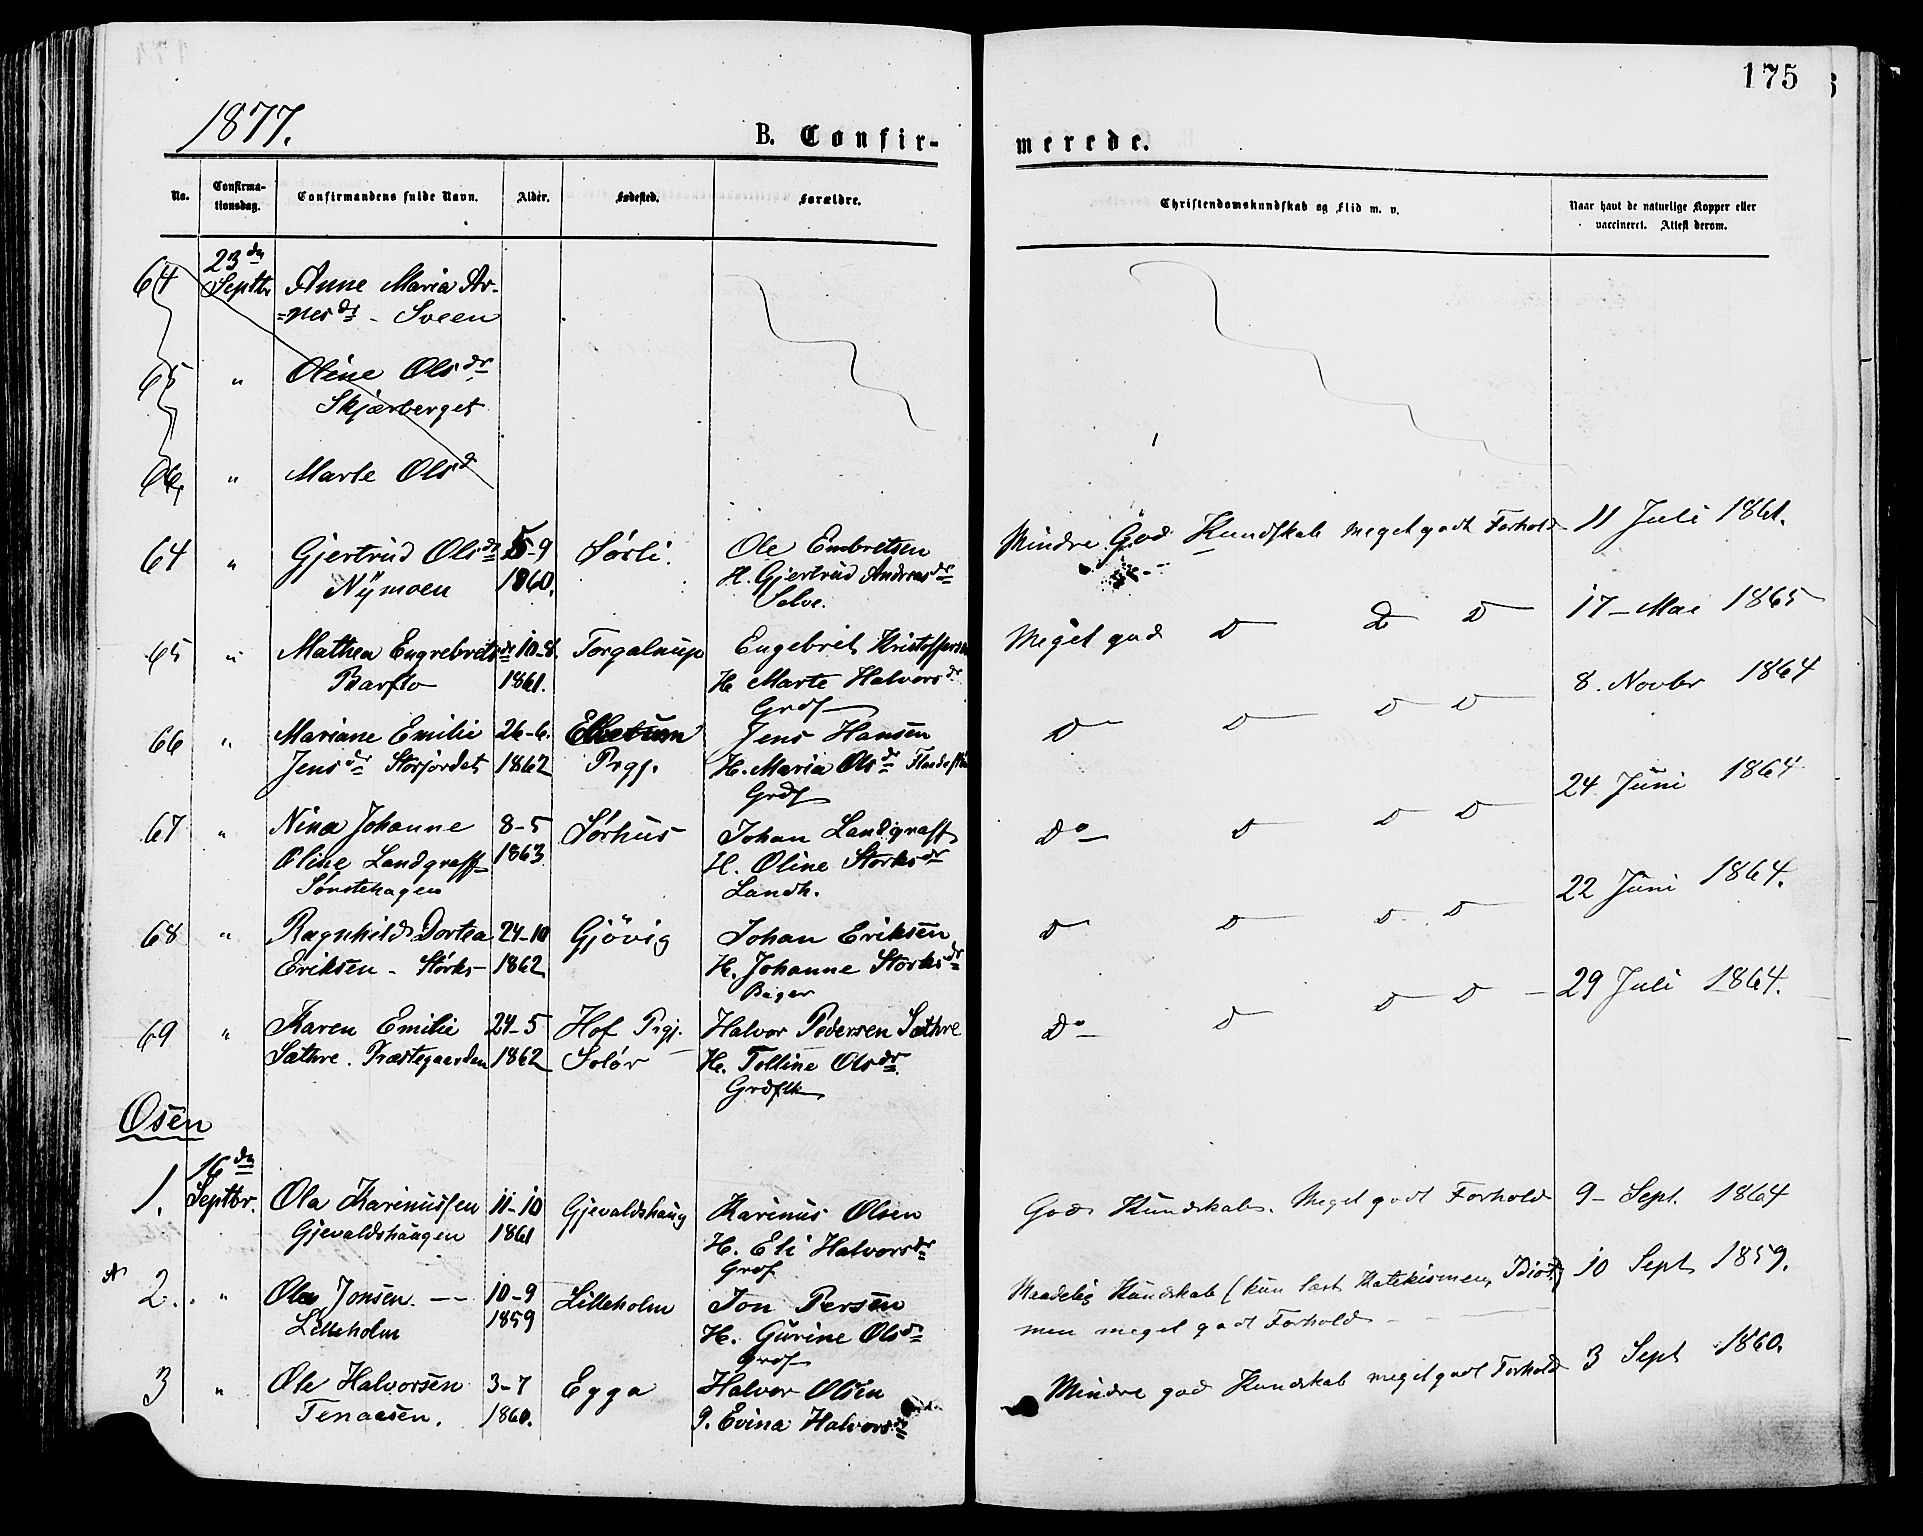 175
1877.
B. Confirmerede.
No. Confirmationsdag. Confirmandens fulde Navn. Alder. Fødested. Forældre. Christendomskundskab og Flid m. v. Naar havt de naturlige Kopper eller vaccineret. Attest derom.
64 23de Septbr Anne Maria Ar-
=nesdr - Sveen
65 " Oline Olsdr
Skjærberget
66, " Marte Olsd
64 " Gjertrud Olsdr 5-9 Sørli. Ole Embretsen Mindre God Kundskab meget godt Forhold 11 Juli 1861.
Nymoen 1860. H. Gjertrud Andreasdr
Selve.
65 " Mathea Engebretsdr 10-8. Engebret Kristoffersen Meget god D D D 17 - Mai 1865
1861. H Marte Halvorsdr
Grdf
66 " Mariane Emilie 26-6. Elverum Jens Hansen D D D D 8. Novbr 1864
Jensdr Storjordet 1862 Prgj. H. Maria Olsdr
Grdf
67 " Nina Johanne 8-5 Sørhus Johan Landgraff Do D D D 24 Juni 1864
Oline Landgraff 1863 H. Oline Storksdr
Sønstehagen Landh.
68 " Ragnhild Dortea 24-10 Gjövig Johan Eriksen D D D D 22 Juni 1864.
Eriksen - Storks- 1862 H. Johanne Storksdr
Bager
69 " Karen Emilie 24-5 Hof Prgj. Halvor Pedersen Sæthre Do D D D 29 Juli 1864.
Sæthre. Præstegaarden 1862 Solør H. Tolline Olsdr
Osen
1. 16de Septbr. Ola Karinussen 11-10 Gjevaldshaug Karinus Olsen God Kundskab. Meget godt Forhold 9 - Sept. 1864
Gjevaldshaugen 1861 H. Eli Halvorsdr
Grdf
2. " Ola Jonsen. 10-9 Lilleholm Jon Persen Maadelig Kundskab (kun læst Katekismen, Idiot) 10 Sept 1859.
Lilleholm 1859 H. Gurine Olsdr men meget godt Forhold
Grdf
3 " Ole Halvorsen 3-7 Egga Halvor Olsen Mindre god Kundskab meget godt Forhold 3 Sept 1860.
Tenaasen. 1860. P. Evina Halvorsdr